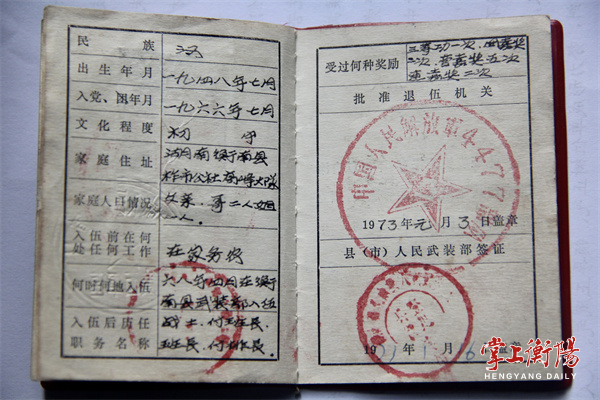 民 族 汉
出生年月 一九四八年七月
入党、团年月 一九六六年七月
文化程度 初 中
家庭住址 湖南衡南县
柞市公社
家庭人口情况 父亲、哥二人姐
一人。
入伍前在何
处任何工作 在家务农
何时何地入伍 六八年四月在衡
南县武装部入伍
入伍后历任
职务名称 战士、付班长、
班长、付排长。
受过何种奖励 三等功一次,
二次,营嘉奖五次
连嘉奖二次
批准退伍机关
中国人民解放军4477部队
1973年元月3日盖章
县(市)人民武装部签证
年 月 盖章
掌上衡陽
HENGYANG DAILY